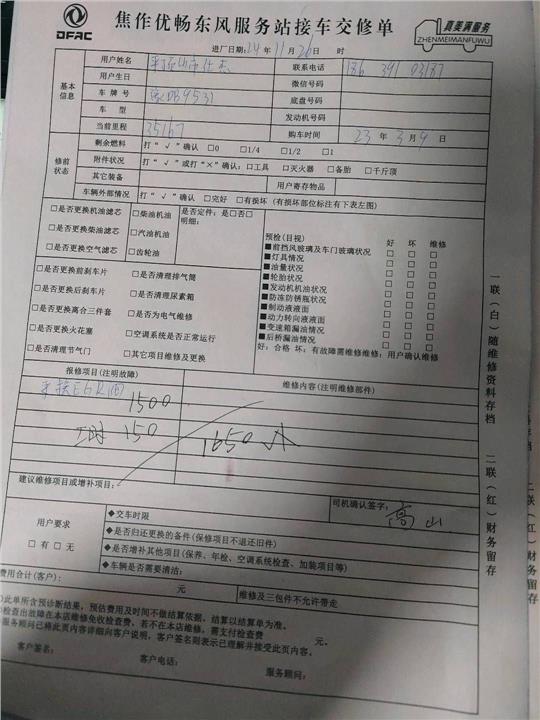 DFAC
焦作优畅东风服务站接车交修单
真美满服务
ZHENMEIMANFUWU
进厂日期:24年11月26日 时
基本信息
用户姓名 联系电话 186 391 03187
用户生日 微信号码
车牌号 豫DB9531 底盘号码
车型 发动机号码
当前里程 35167 购车时间 23年3月9日
修前状态
剩余燃油 打“√”确认 □0 □1/4 □1/2 □1
附件状况 打“√”或打“×”确认:□工具 □灭火器 □备胎 □千斤顶
其它装备 用户寄存物品
车辆外部情况 打“√”确认 □完好 □有损坏(有损坏部位标注有下表左图)
□是否更换机油滤芯 □柴油机油 是否定件:是□否□
□是否更换柴油滤芯 □汽油机油 明细:
□是否更换空气滤芯 □齿轮油
□是否更换前刹车片 □是否清理排气筒
□是否更换后刹车片 □是否清理尿素箱
□是否更换离合三件套 □是否为电气维修
□是否更换火花塞 □空调系统是否正常运行
□是否清理节气门 □其它项目维修及更换
预检(目视) 好 坏 维修
■前挡风玻璃及车门玻璃状况 □ □ □
■灯具情况 □ □ □
■油量状况 □ □ □
■轮胎状况 □ □ □
■发动机机油状况 □ □ □
■防冻防锈瓶状况 □ □ □
■制动液液面 □ □ □
■动力转向液液面 □ □ □
■变速箱漏油情况 □ □ □
■后桥漏油情况 □ □ □
好:合格 坏:有故障需维修维修:用户确认维修
报修项目(注明故障) 维修内容(注明维修部件)
EGR阀
1500
工时 150
1650
建议维修项目或增补项目:
司机确认签字: 高山
用户要求
□有 □无
◆交车时限
◆是否归还更换的备件(保修项目不退还旧件)
◆是否增补其他项目(保养、年检、空调系统检查、加装项目等)
◆车辆是否需要清洁:
费用合计(客户): 元。 维修及三包件不允许带走
此单所含预诊断结果,预估费用及时间不做结算依据。结算以结算单为准。
检查出故障在本店维修免收检查费。若不在本店维修,需支付检查费 元。
服务顾问已将此页内容详细向客户说明,客户签名则表示已理解并接受此页内容。
客户签名: 客户电话: 服务顾问:
一联(白)随维修资料存档 二联(红)财务留存